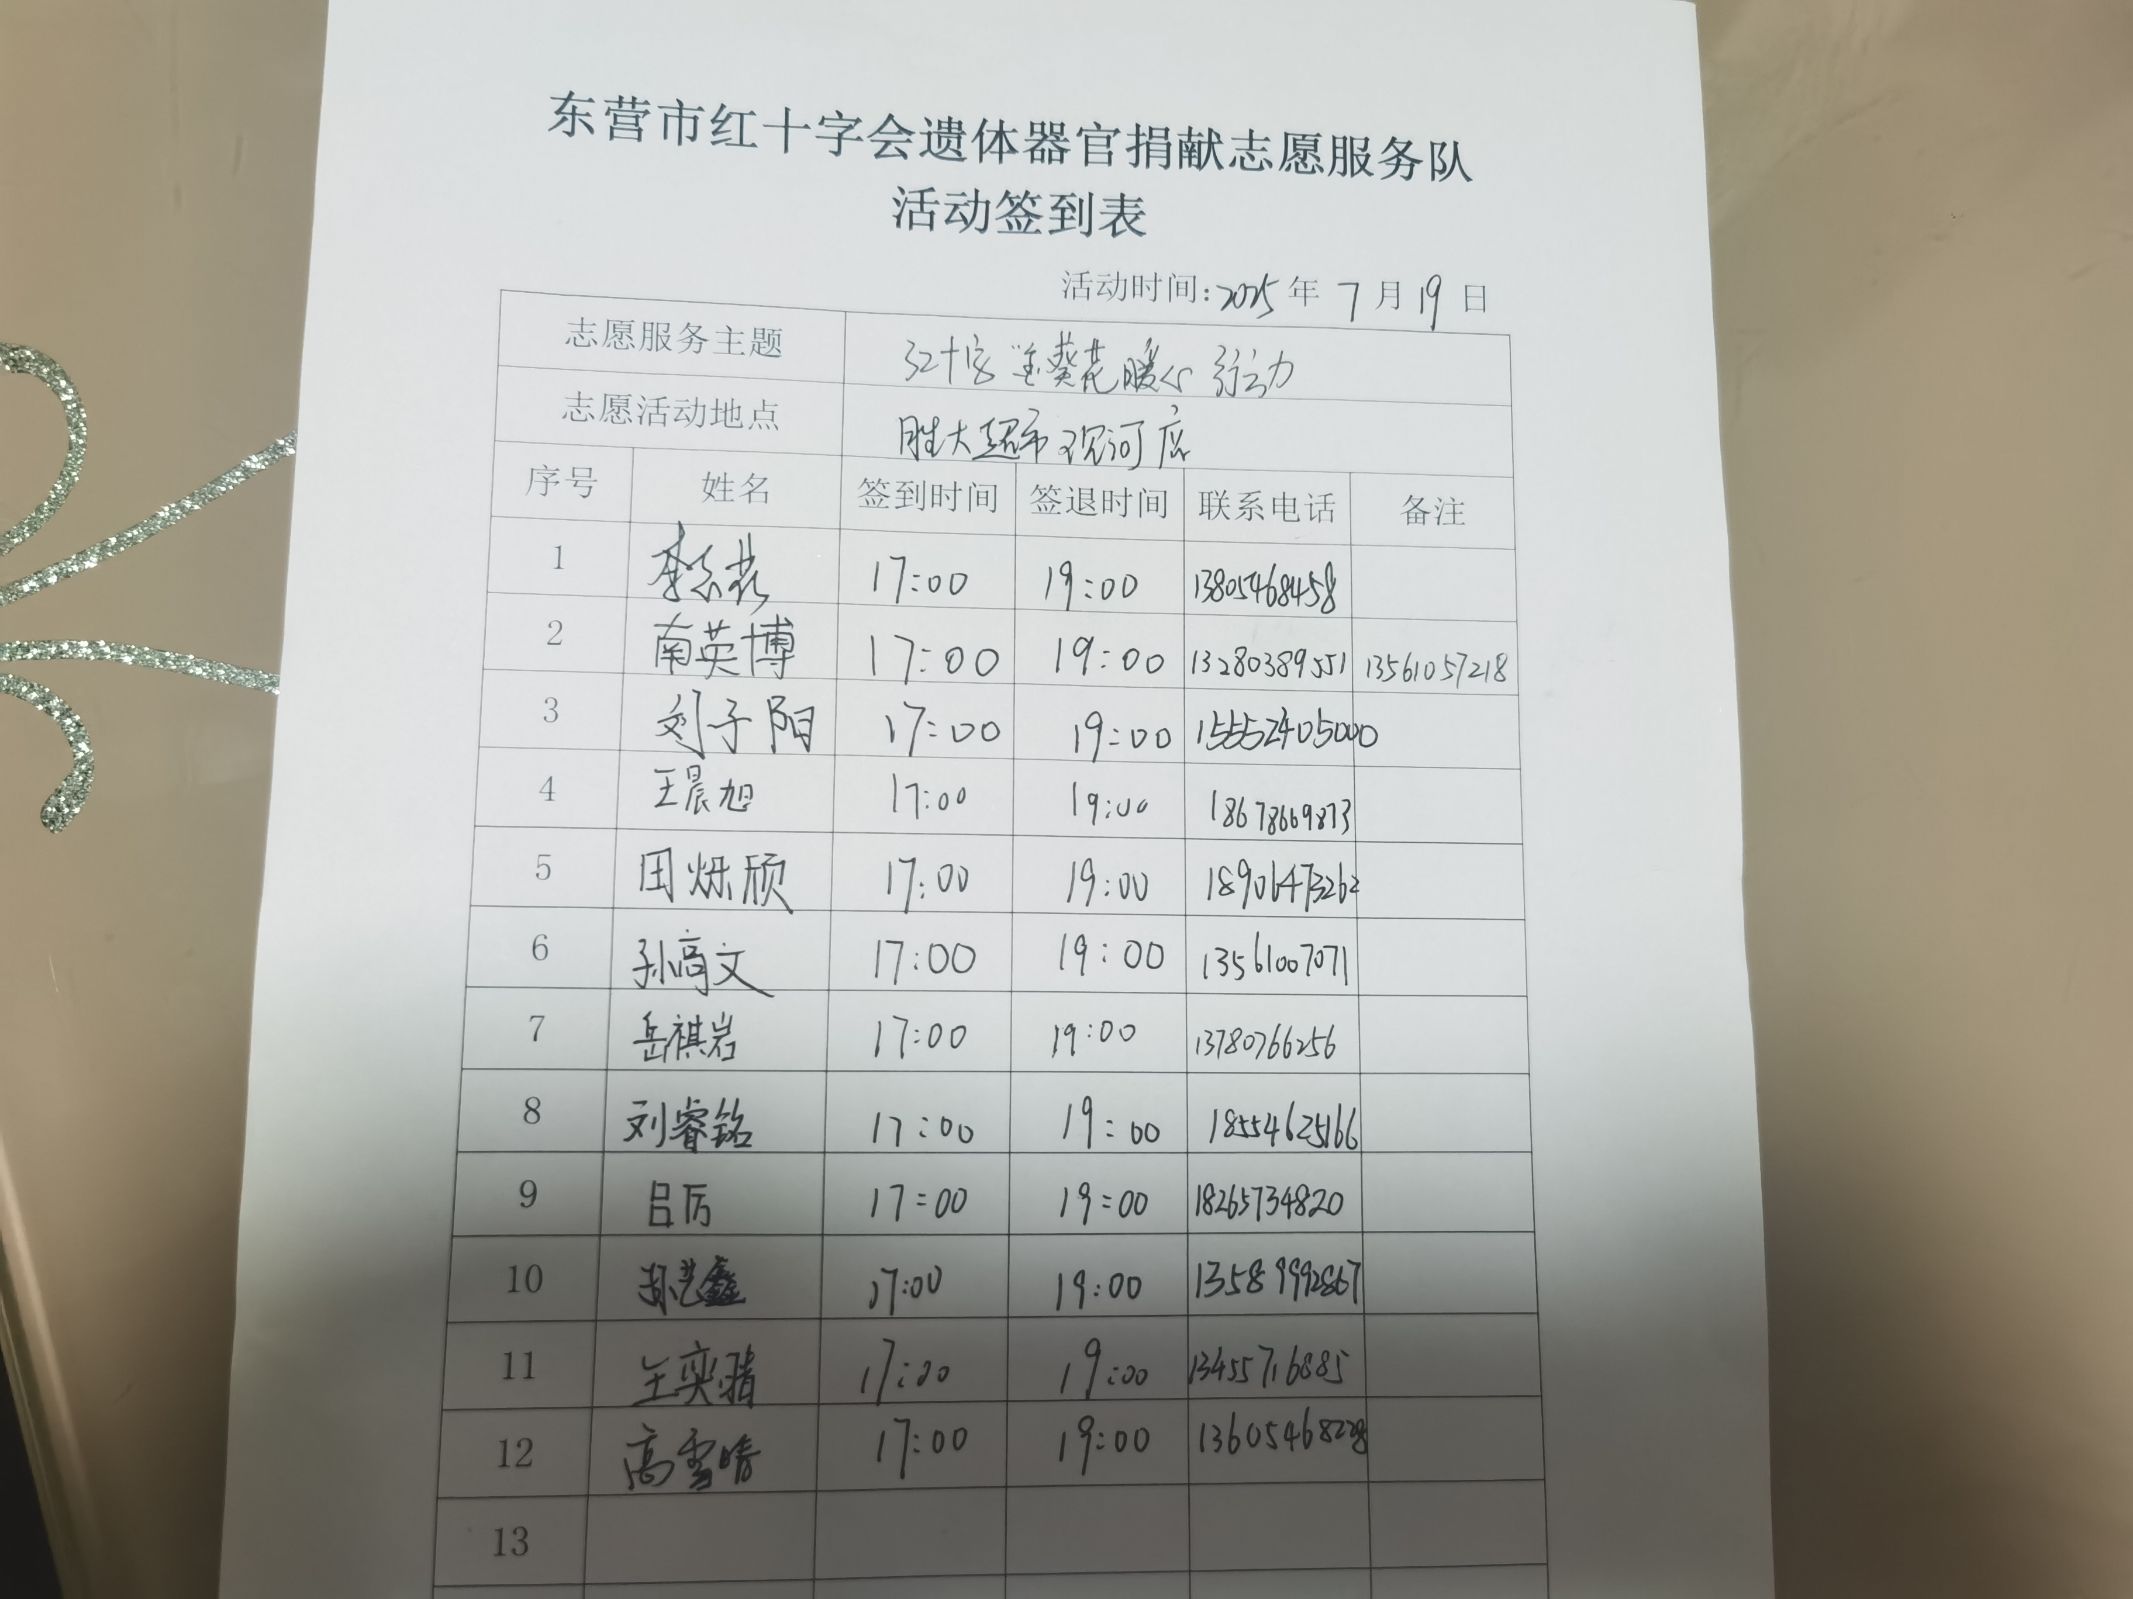 东营市红十字会遗体器官捐献志愿服务队
活动签到表
活动时间:2025年7月19日
志愿服务主题 红十字"金葵花暖心行动
志愿活动地点 胜大超市观河店
序号 姓名 签到时间 签退时间 联系电话 备注
1 李 17:00 19:00 13805468458
2 南英博 17:00 19:00 13280389551 13561057218
3 刘子阳 17:00 19:00 15552405000
4 王晨旭 17:00 19:00 18678669873
5 田烁颀 17:00 19:00 18906473262
6 孙高文 17:00 19:00 13561007071
7 岳祺岩 17:00 19:00 13780766256
8 刘睿铭 17:00 19:00 18554625166
9 吕厉 17:00 19:00 18265734820
10 17:00 19:00 13589992867
11 王奕骑 17:00 19:00 13455716885
12 高雪晴 17:00 19:00 13605468228
13